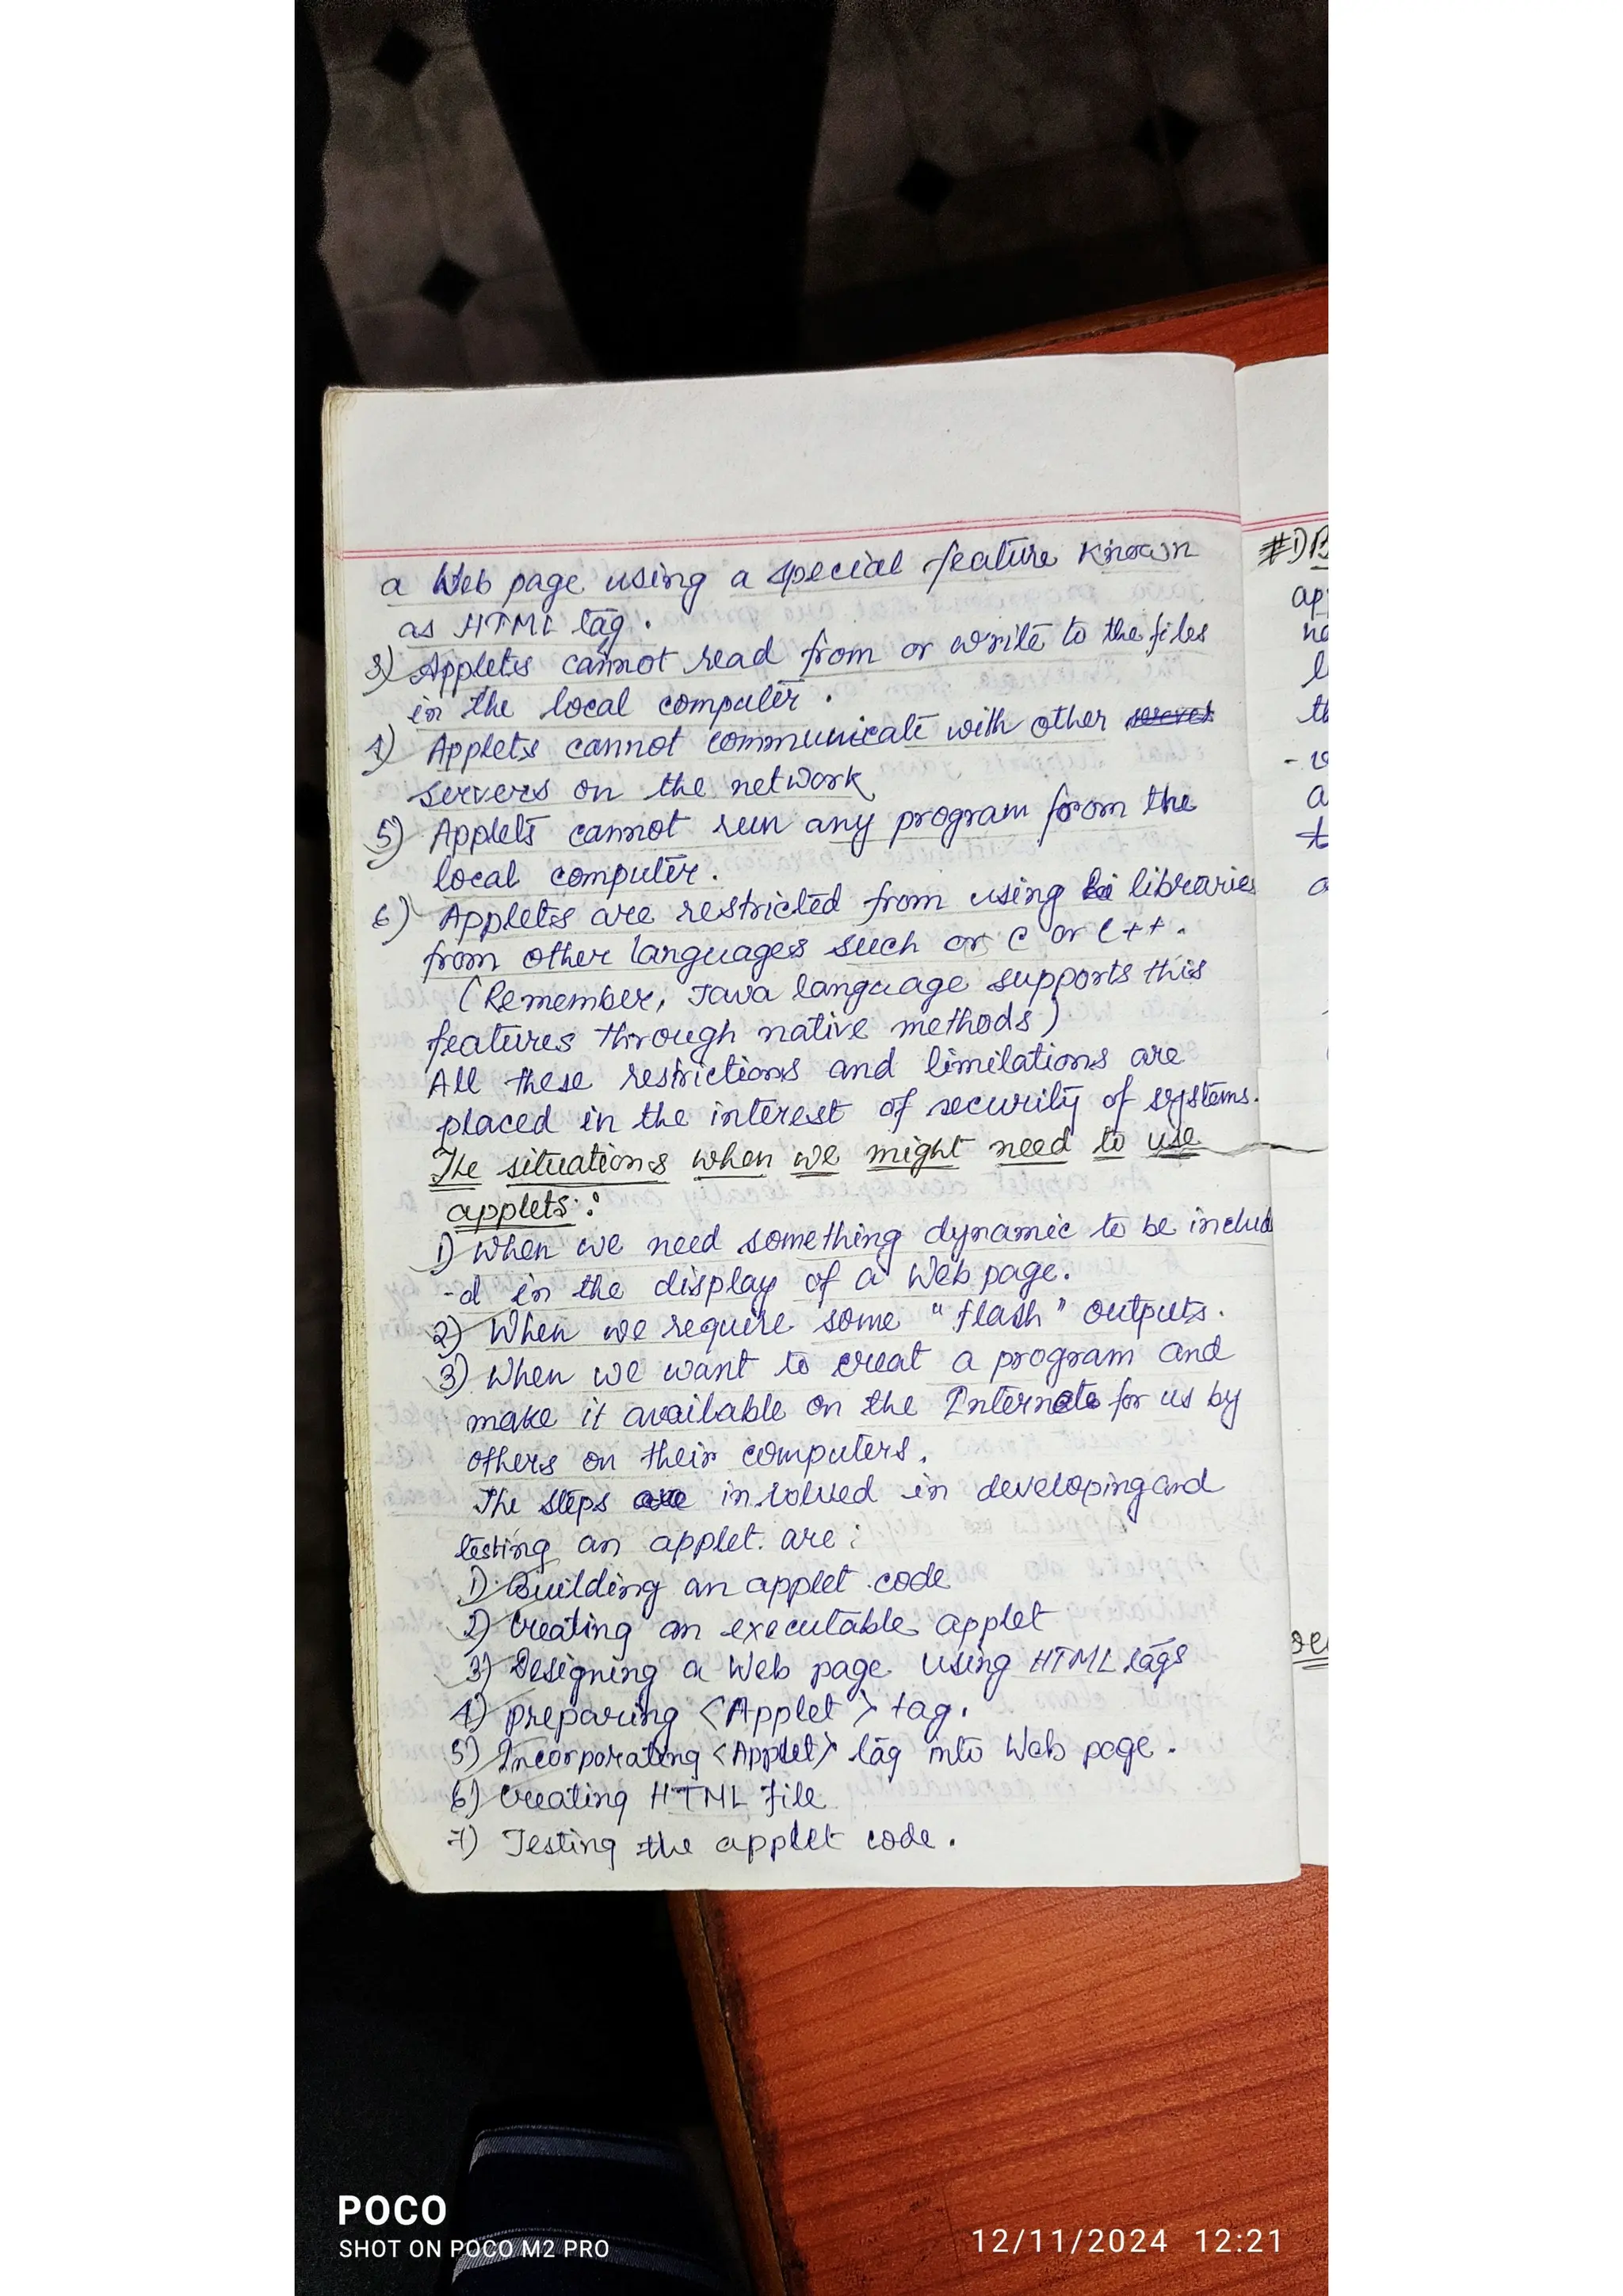 a Web page using a special feature known
as HTML tag.
3) Applets cannot read from or write to the files
in the local computer.
4) Applets cannot communicate with other
servers on the network
5) Applets cannot run any program from the
local computer.
6) Applets are restricted from using libraries
from other languages such or C or C++.
(Remember, Java language supports this
features through native methods)
All these restrictions and limitations are
placed in the interest of security of systems.
The situations when we might need to use
applets:
1) When we need something dynamic to be includ
-d in the display of a Web page.
2) When we require some "flash" outputs.
3) When we want to creat a program and
make it available on the Internete for us by
others on their computers.
The steps are involved in developing and
testing an applet. are:
1) Building an applet code
2) Creating an executable applet
3) Designing a Web page using HTML tags
4) Preparing <Applet> tag.
5) Incorporating <Applet> tag into Web page.
6) Creating HTML file
7) Testing the applet code.
POCO
SHOT ON POCO M2 PRO
12/11/2024 12:21